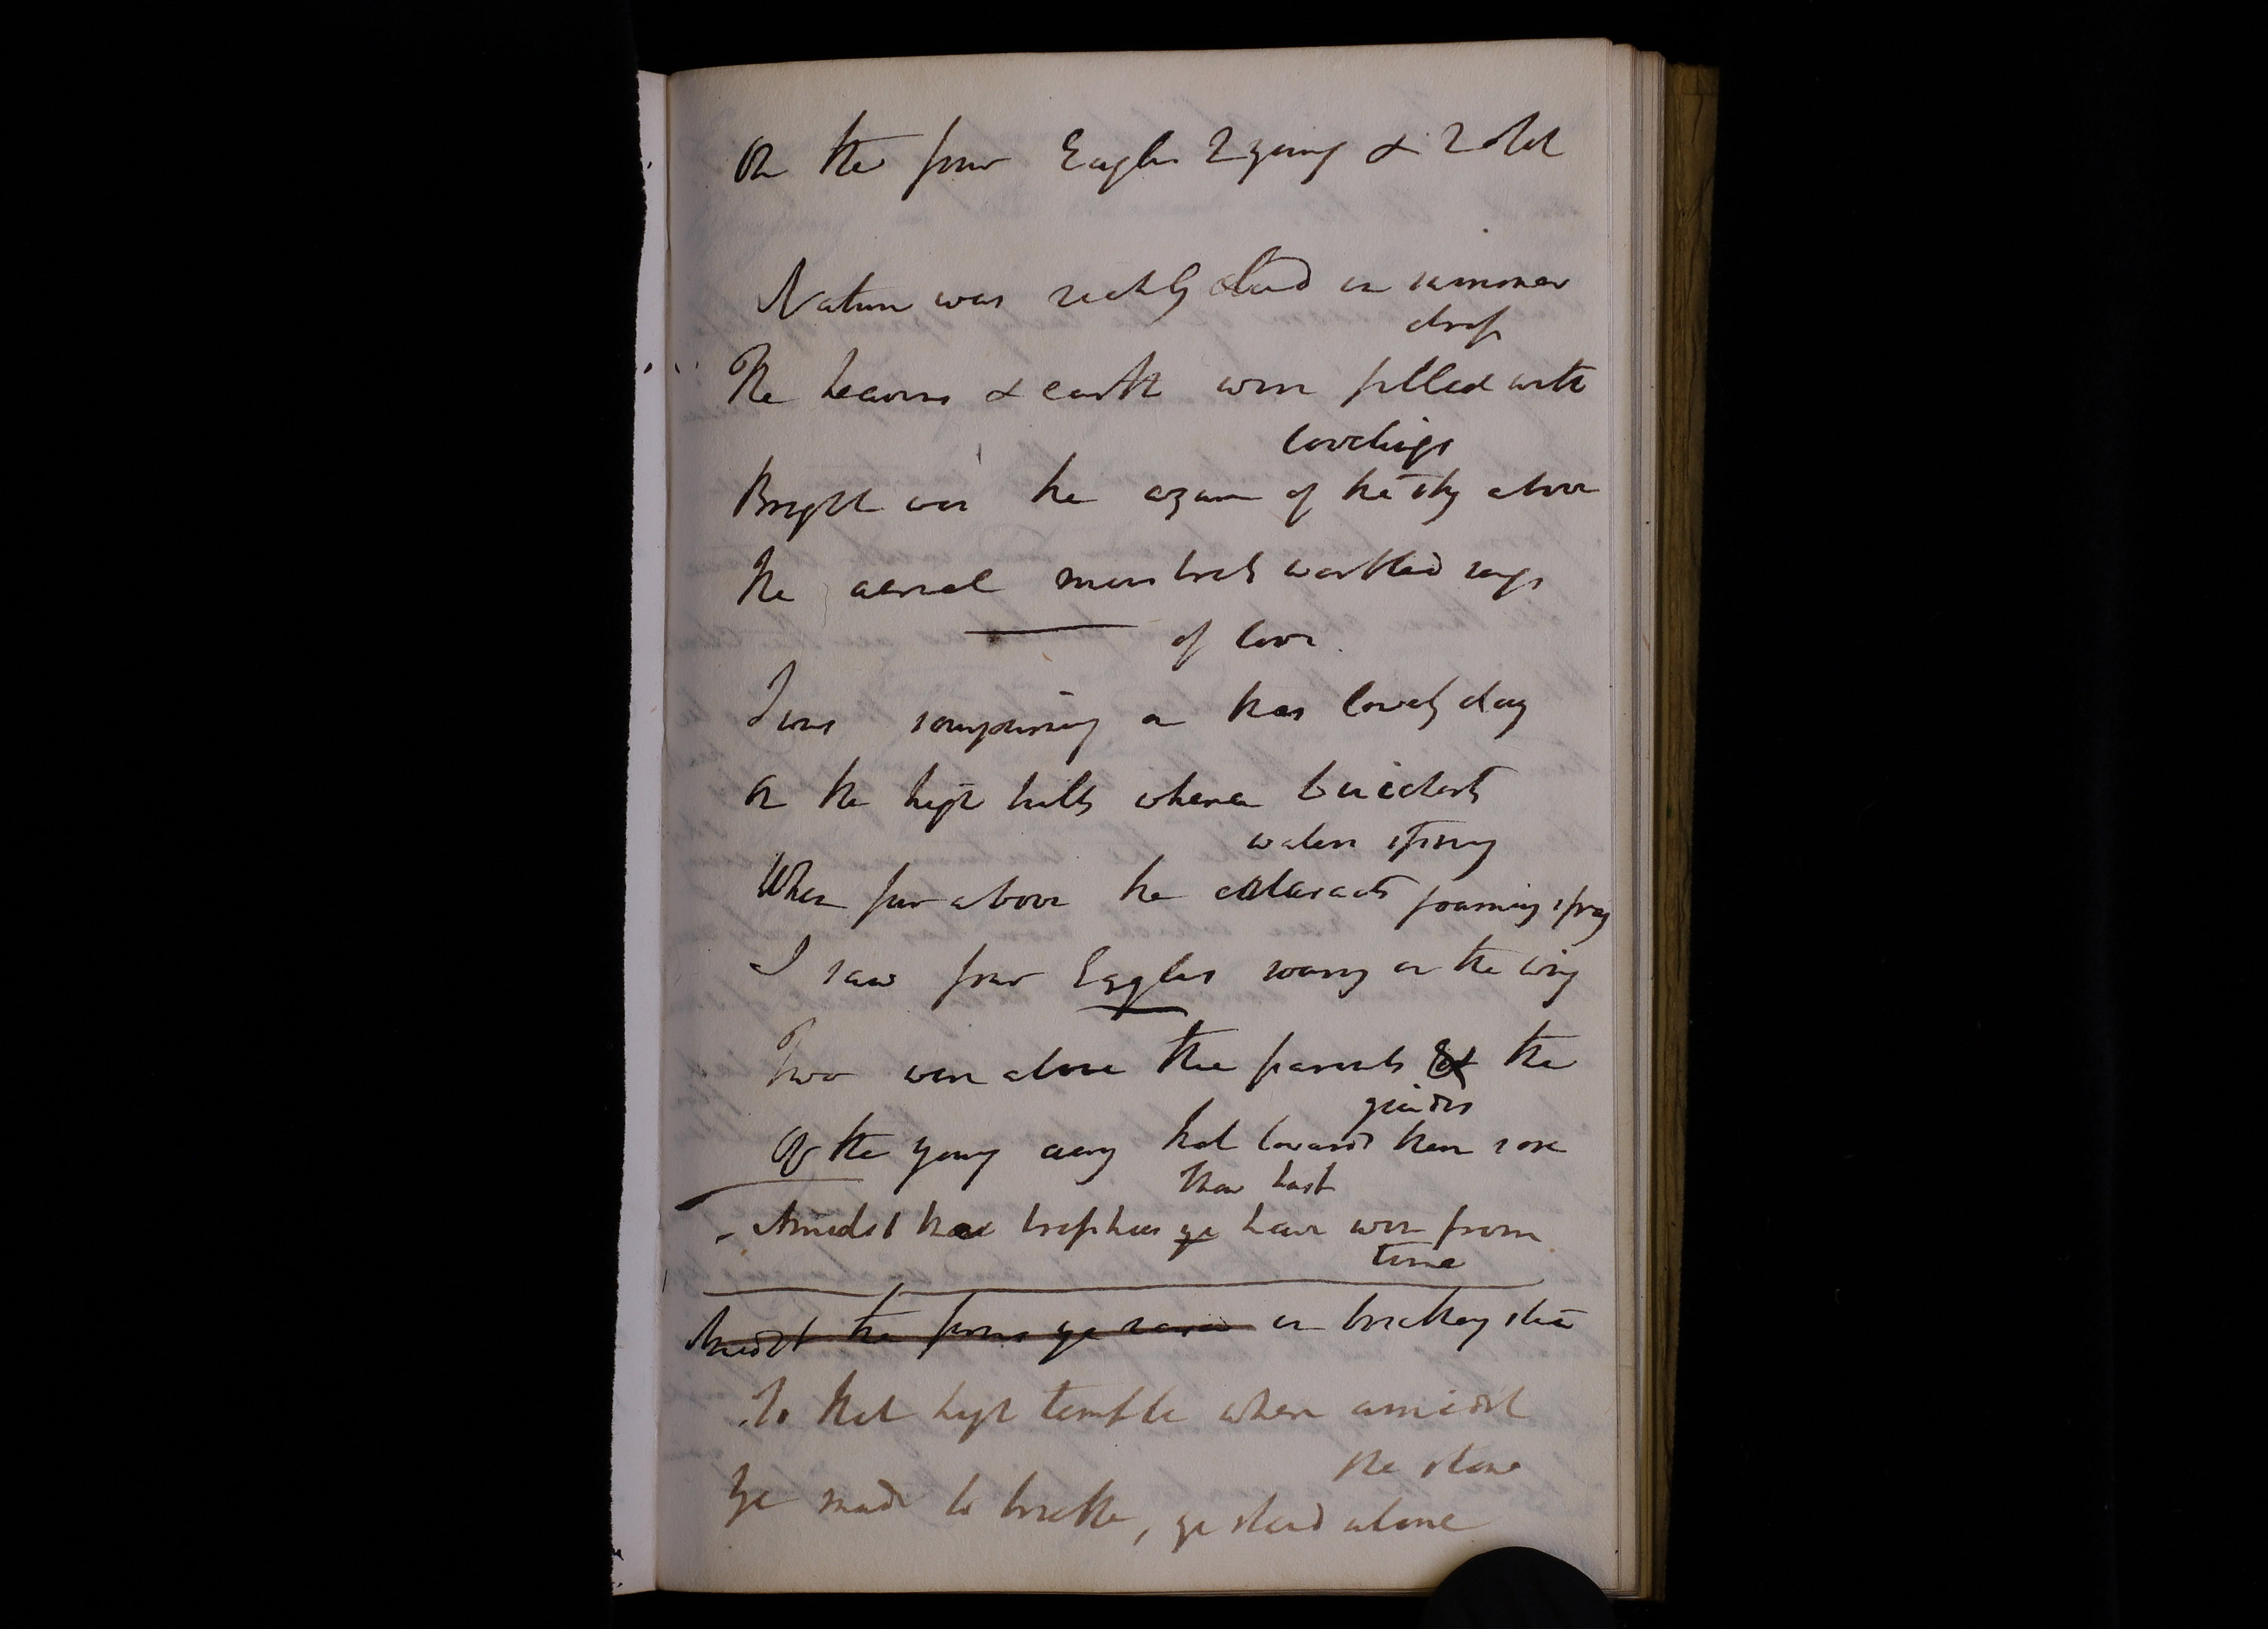 On the four Eagles 2 young & 2 old
Nature was richly clad in summer
dress
The heavens & earth were filled with
loveliness
Bright was the azure of the sky above
The aerial minstrels warbled songs
of love.
I was on this lovely day
On the high hills whence
waters spring
When far above the cataracts foaming spray
I saw four Eagles soaring on the wing
Two were above the parents & the
guides
Of the young that towards them rose
thou hast
Amidst the trophies ye have won from
time
Amidst the forms ye raised in breathing stone
To that high temple where amidst
the stone
Ye made to breathe, ye stand alone